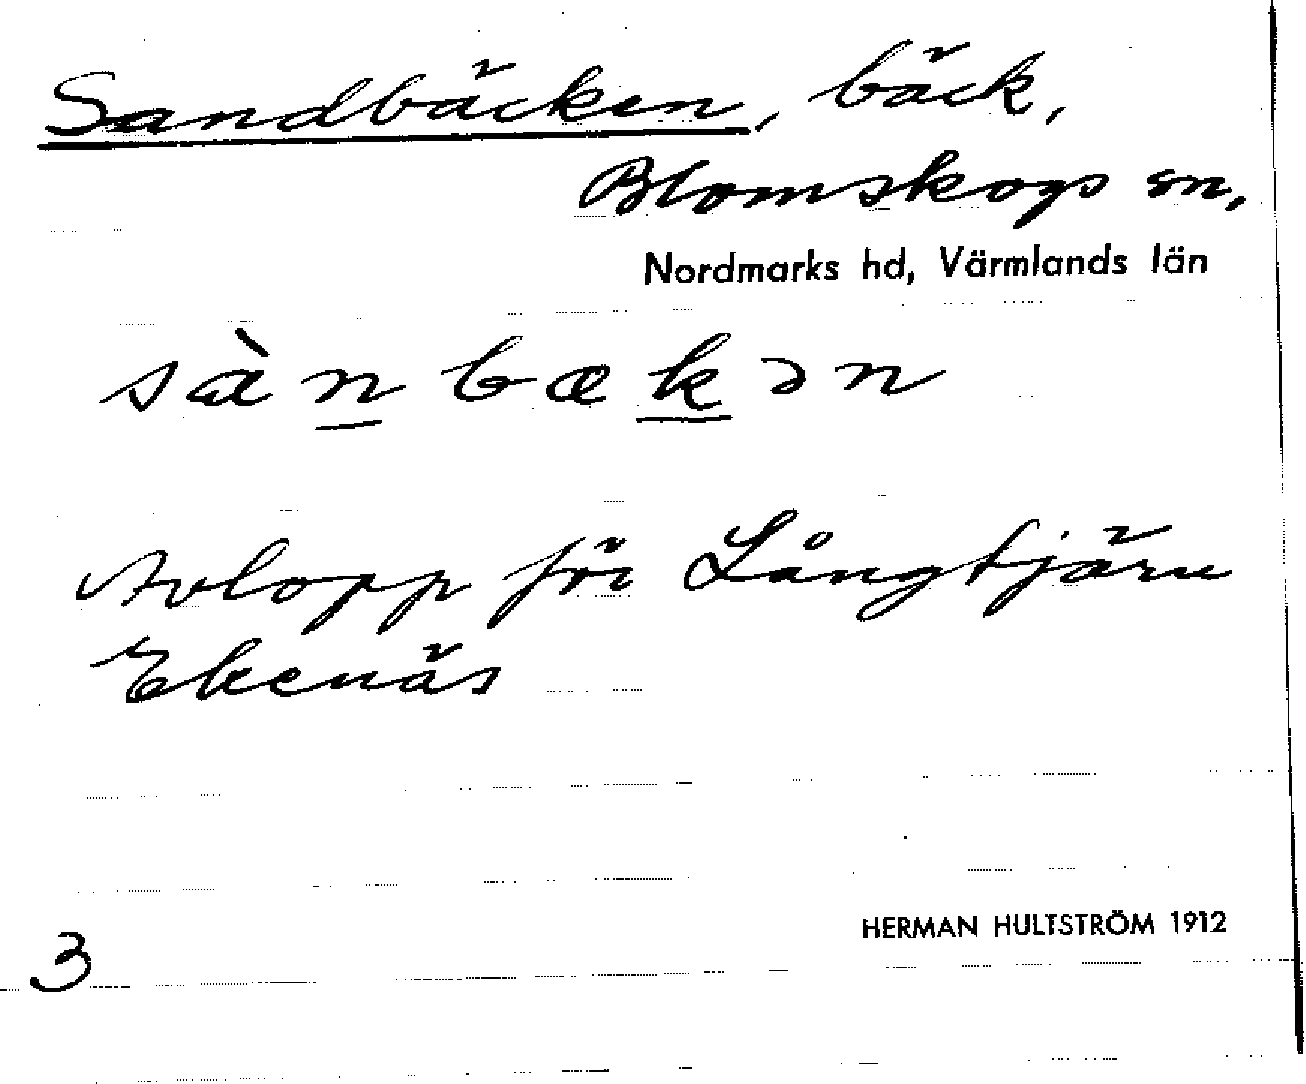 Sandbäcken, bäck,
Blomskogs sn,
Nordmarks hd, Värmlands län
sànbækən
Avlopp för Långtjärn
Ekenäs
HERMAN HULTSTRÖM 1912
3